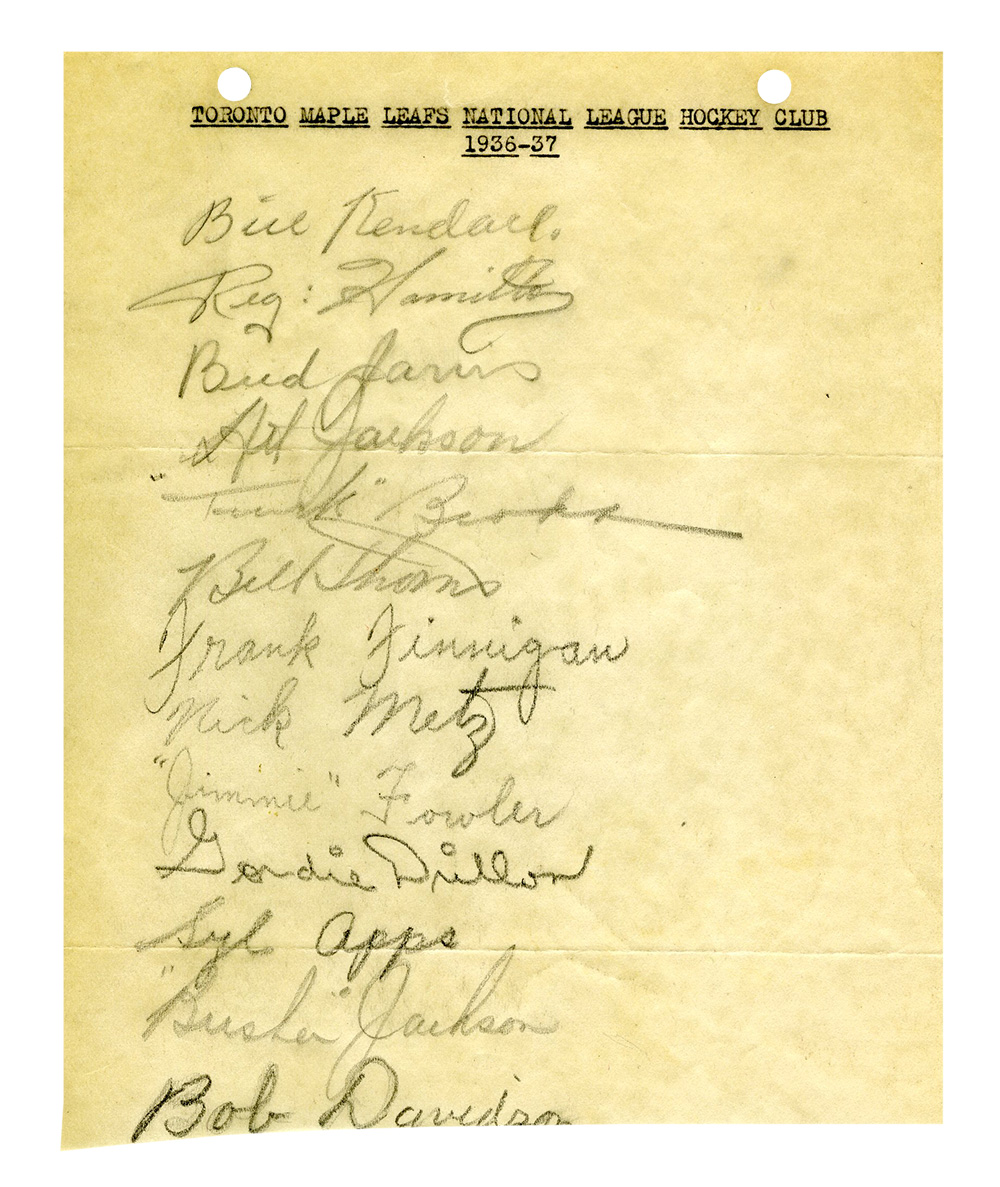 TORONTO MAPLE LEAFS NATIONAL LEAGUE HOCKEY CLUB
1936-37
Bill Kendall.
Reg: Hamilton
Bud Jarvis
Art Jackson
"Turk" Broda
Bill Thoms
Frank Finnigan
Nick Metz
"Jimmie" Fowler
Gordie Drillon
Syl Apps
"Busher" Jackson
Bob Davidson